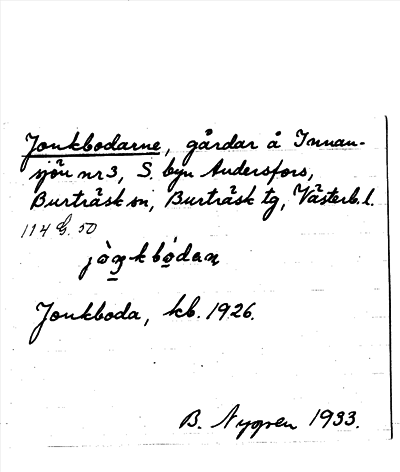 Jonkbodarne, gårdar å Innan-
sjön nr 3, S. byn Andersfors,
Burträsk sn, Burträsk tg, Västerb. l.
114 50
jòn̠kbo̠dan
Jonkboda, kb. 1926.
B. Nygren 1933.